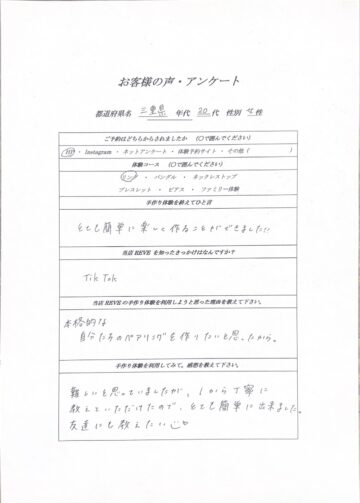 お客様の声・アンケート
都道府県名 三重県 年代 20代 性別 女性
ご予約はどちらからされましたか (〇で囲んでください)
・ Instagram ・ ネットアンケート ・ 体験予約サイト ・ その他 ( )
体験コース (〇で囲んでください)
リング ・ バングル ・ ネックレストップ
ブレスレット ・ ピアス ・ ファミリー体験
手作り体験を終えてひと言
とても簡単に楽しく作ることができました!!
当店 REVE を知ったきっかけはなんですか?
TikTok
当店 REVE の手作り体験を利用しようと思った理由を教えて下さい。
本格的な
自分たちのペアリングを作りたいと思ったから。
手作り体験を利用してみて、感想を教えて下さい。
難しいと思っていましたが、1から丁寧に
教えていただけたので、とても簡単に出来ました。
友達にも教えたい